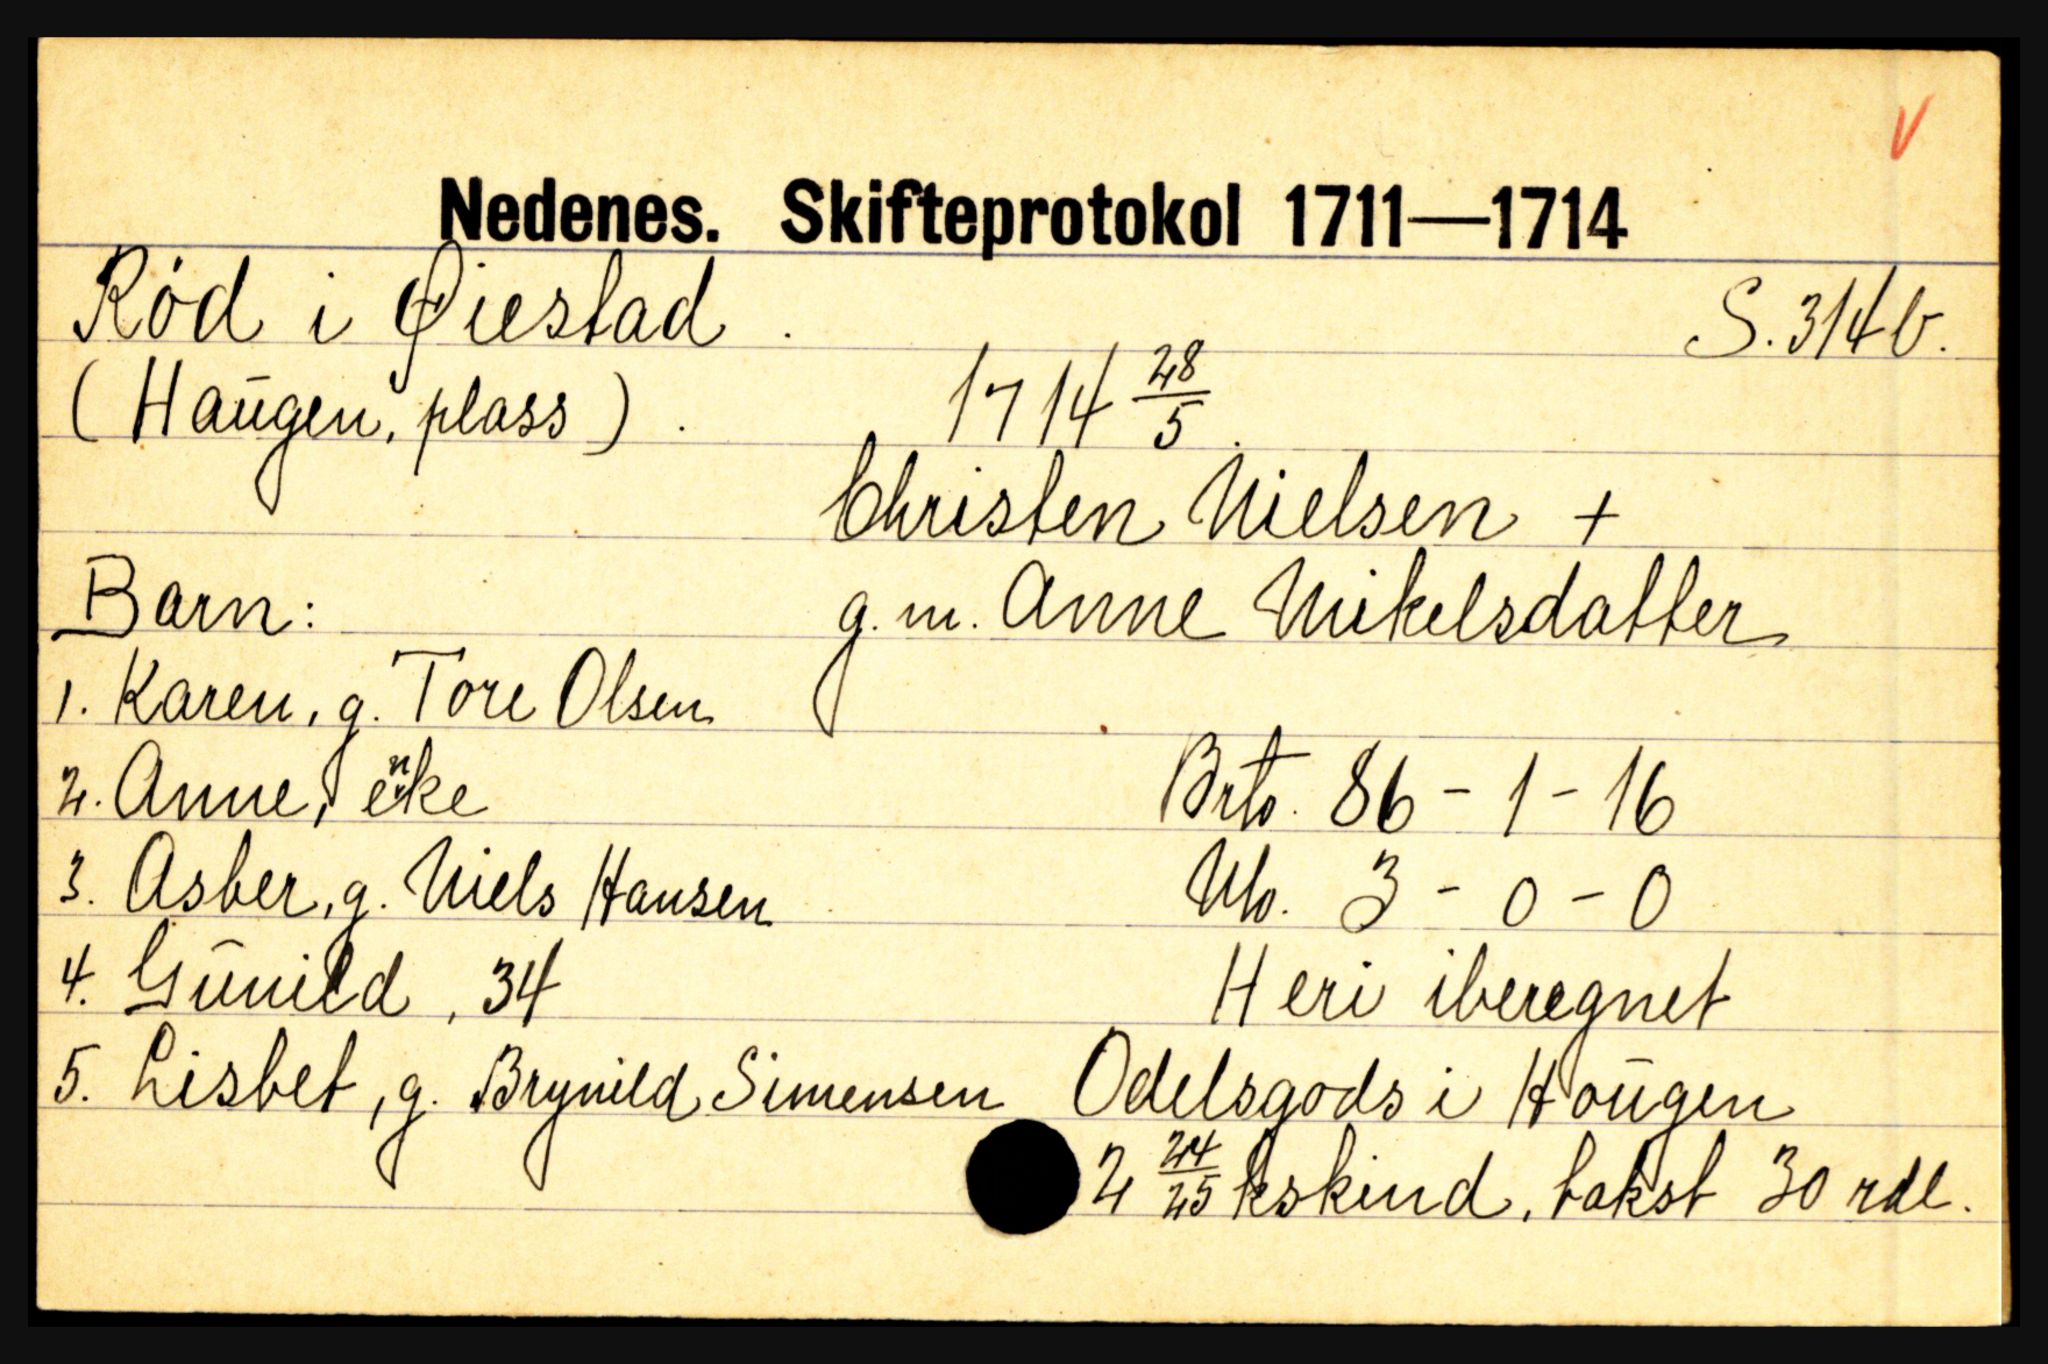 V
Nedenes. Skifteprotokol 1711—1714
Röd i Øiestad.
S. 314 b.
(Haugen, plass).
1714 28/5.
Christen Nielsen +
Barn:
g. m. Anne Mikelsdatter
1. Karen, g. Tore Olsen
2. Anne, enke
Brto. 86 - 1 - 16
3. Asber, g. Niels Hansen
Nto. 3 - 0 - 0
4. Gunild, 34
Heri iberegnet
5. Lisbet, g. Brynild Simensen
Odelsgods i Hougen
2 24/25 kskind, takst 30 rdl.